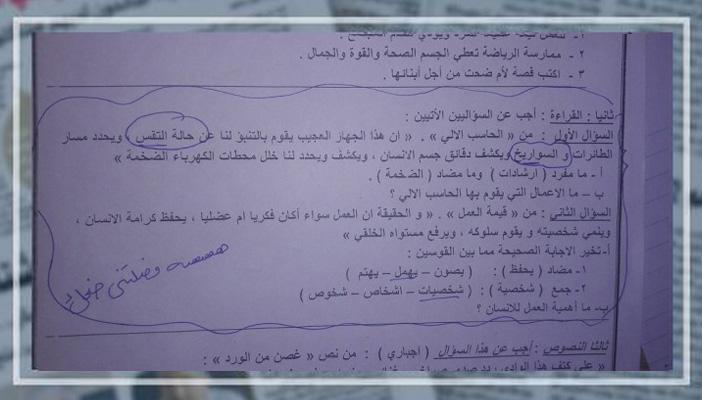 ٢ - ممارسة الرياضة تعطي الجسم الصحة والقوة والجمال .
٣ - اكتب قصة لأم ضحت من أجل أبنائها .
ثانيا : القراءة : أجب عن السؤالين الأتيين :
السؤال الأول : من « الحاسب الالي » . « ان هذا الجهاز العجيب يقوم بالتنبؤ لنا عن حالة التقس ، ويحدد مسار
الطائرات و السواريخ ويكشف دقائق جسم الانسان ، ويكشف ويحدد لنا خلل محطات الكهرباء الضخمة »
أ - ما مفرد ( ارشادات ) وما مضاد ( الضخمة ) .
ب – ما الاعمال التي يقوم بها الحاسب الالي ؟
السؤال الثاني : من « قيمة العمل » . « و الحقيقة ان العمل سواء أكان فكريا ام عضليا ، يحفظ كرامة الانسان ،
وينمي شخصيته و يقوم سلوكه ، ويرفع مستواه الخلقي »
أ-تخير الاجابة الصحيحة مما بين القوسين :
١- مضاد ( يحفظ ) : ( يصون – يهمل – يهتم )
٢- جمع ( شخصية ) : ( شخصيات – اشخاص – شخوص )
ب- ما أهمية العمل للانسان ؟
ثالثا النصوص : أجب عن هذا السؤال ( اجباري ) : من نص « غصن من الورد » :
« على كتف هذا الوادي